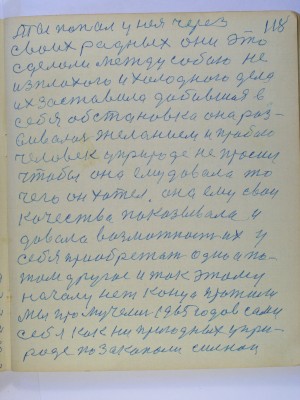 118
Ты попал у нея через
своих радных они это
сделали между собою не
изплохого и холодного дела
их заставила добившая в
себя обстановка она раз
вивалась желанием и такою
человек у природе не просил
чтобы она ему давала то
чего он хотел. она ему свои
качества показывала и
давала возможност их у
себя приобретат одно а по-
том другое и так этому
началу нет конца прожили
мы промучели 1965 годов сами
себя как ни пригодных у при-
роде по законам сильнац